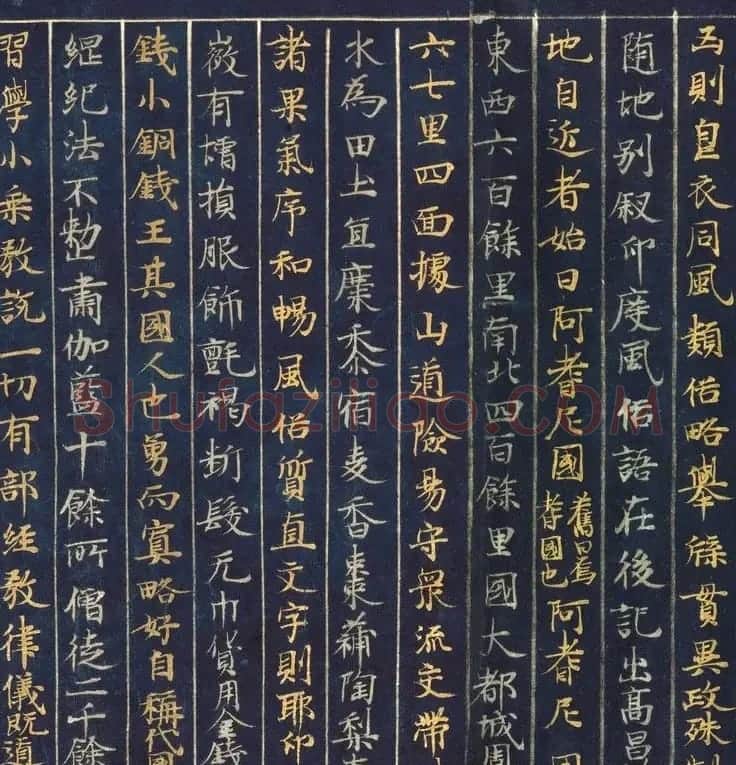 凶則皂衣同風類俗略舉條貫異政殊制
随地別叙印度風俗語在後記出高昌
地自近者始曰阿耆尼國舊曰焉耆國也阿耆尼國
東西六百餘里南北四百餘里國大都城周
六七里四面據山道險易守衆流交帶
水為田土宜糜黍宿麦香棗蒲陶梨
諸果氣序和暢風俗質直文字則取印
微有增損服飾氈褐断髮无巾貨用金錢
錢小銅錢王其國人也勇而寡略好自稱伐國
綱紀法不整肅伽藍十餘所僧徒二千餘
習學小乘教說一切有部經教律儀既遵